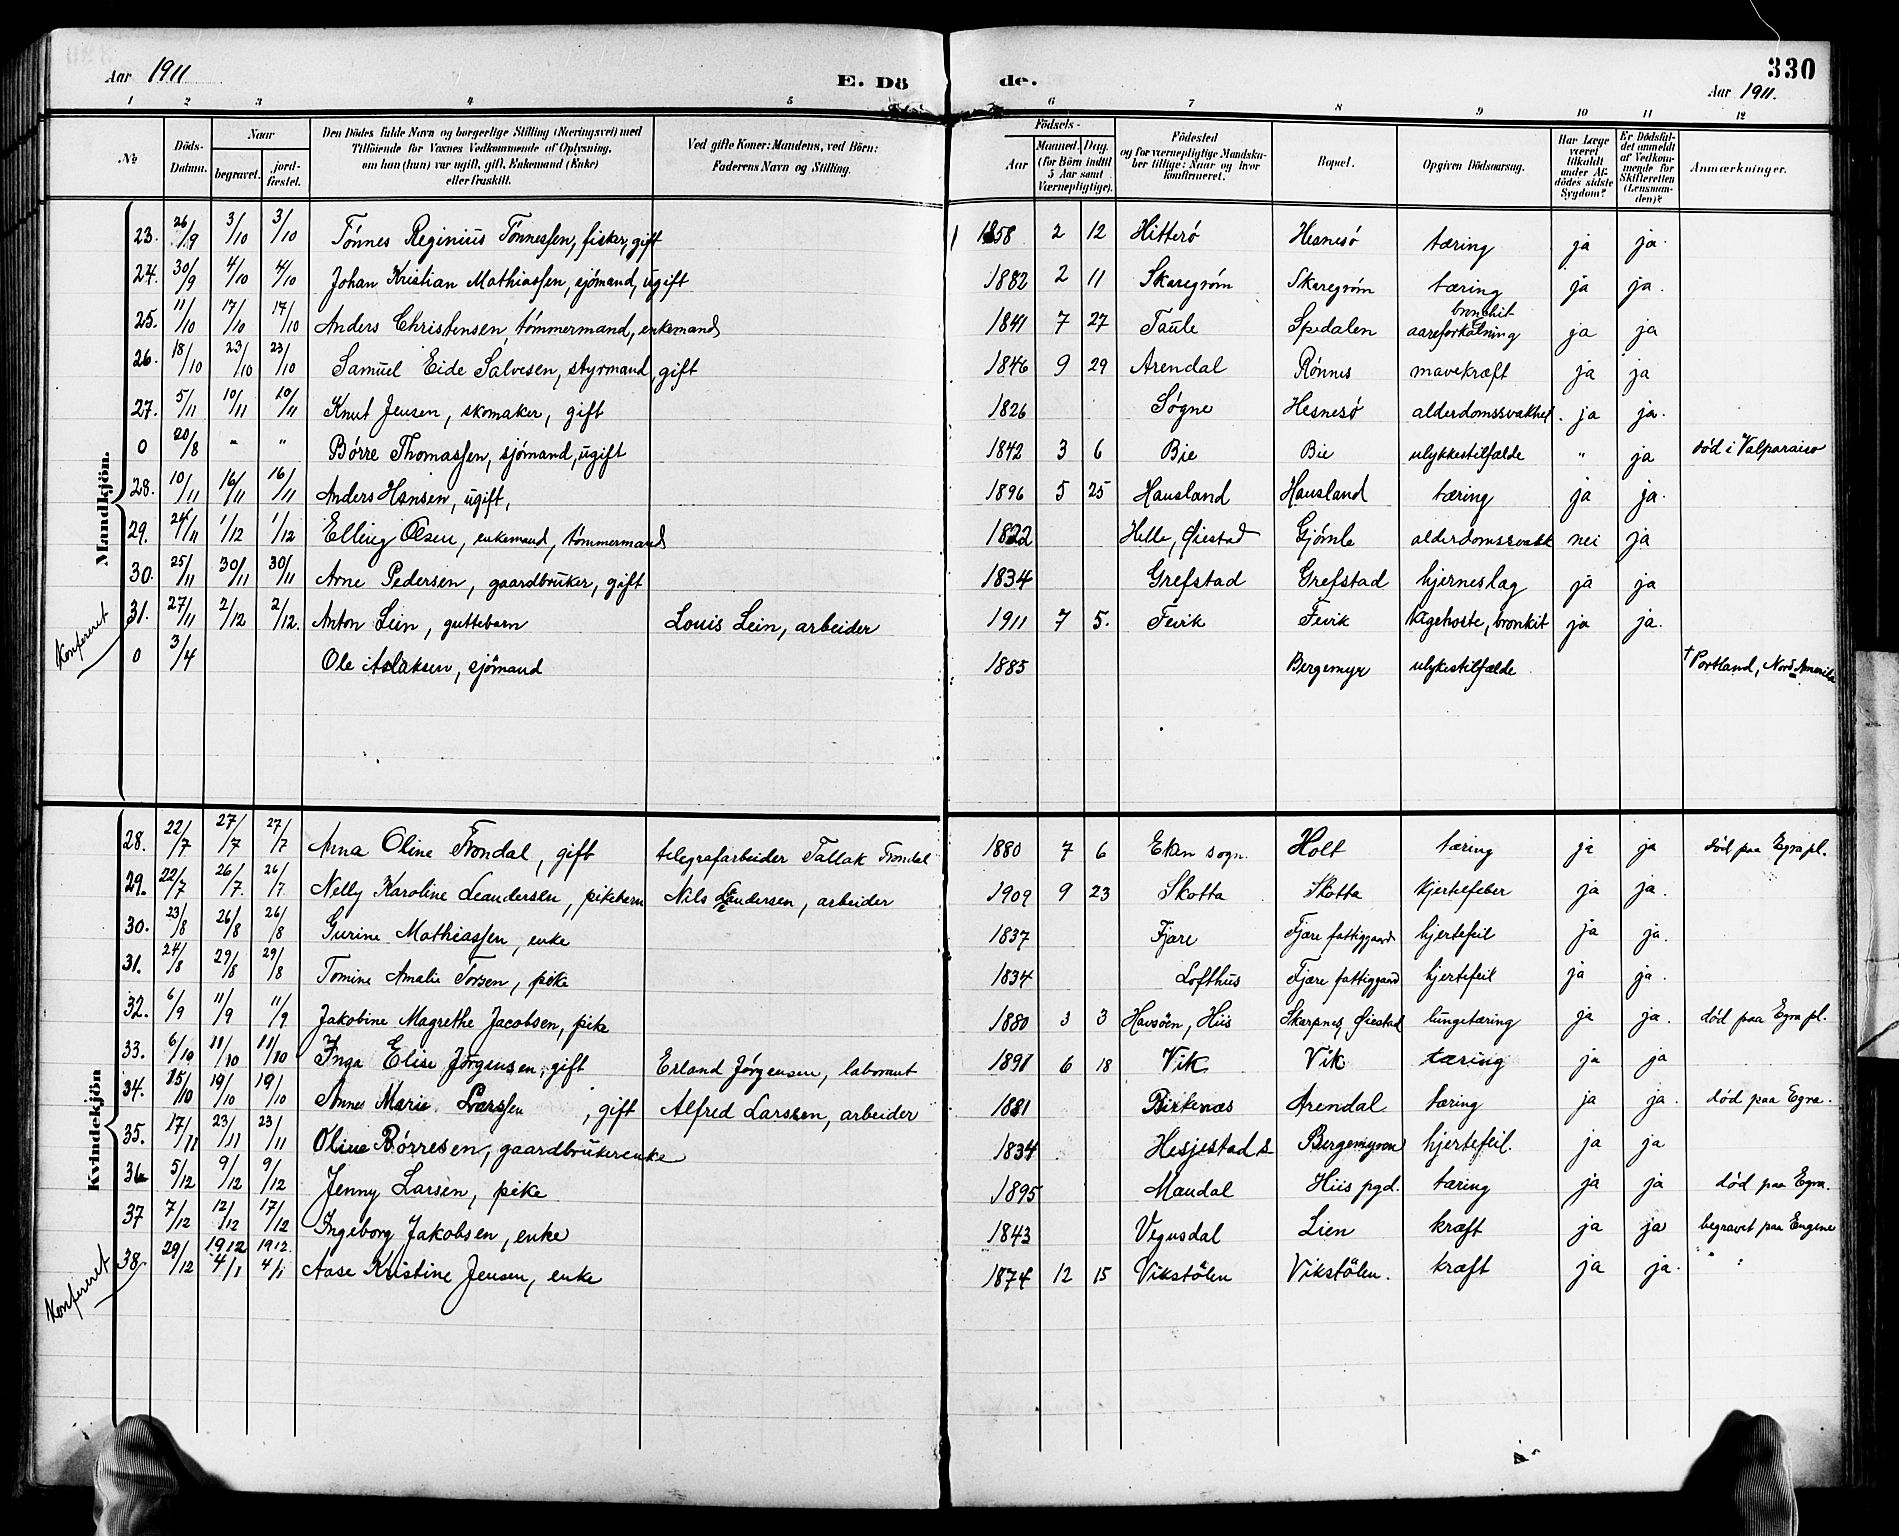 Aar 1911 E. Dö de. 330
Aar 1911.
1 2 3 4 5 6 7 8 9 10 11 12
No | Döds-Datum. | Naar begravet. | jord-fæstet. | Den Dödes fulde Navn og borgerlige Stilling (Næringsvei) med Tilföiende for Voxnes Vedkommende af Oplysning, om han (hun) var ugift, gift, Enkemand (Enke) eller fraskilt. | Ved gifte Koner: Mandens, ved Börn: Faderens Navn og Stilling. | Födsels- Aar | Maaned. | Dag. (for Börn indtil 5 Aar samt Værnepligtige). | Födested og for værnepligtige Mandskaber tillige: Naar og hvor konfirmeret. | Bopæl. | Opgiven Dödsaarsag. | Har Læge været tilkaldt under Afdödes sidste Sygdom? | Er Dödsfaldet anmeldt af Vedkommende for Skifteretten (Lensmanden)? | Anmærkninger.
Mandkjön.
23. 26/9 3/10 3/10 Tönnes Reginius Tönnessen, fisker, gift 1858 2 12 Hitterö Hesnesö tæring ja ja.
24. 30/9 4/10 4/10 Johan Kristian Mathiassen, sjömand, ugift 1882 2 11 Skaregröm Skaregröm tæring ja ja.
25. 11/10 17/10 17/10 Anders Christensen, tömmermand, enkemand 1841 7 27 Taule Spedalen bronkit aareforkalkning ja ja
26. 18/10 23/10 23/10 Samuel Eide Salvesen, styrmand, gift 1846 9 29 Arendal Rönnes mavekræft ja ja
27. 5/11 10/11 10/11 Knut Jensen, skomaker, gift 1826 Søgne Hesnesö alderdomssvakhet. ja ja.
0 20/8 " " Börre Thomassen, sjömand, ugift 1842 3 6 Bie Bie ulykkestilfælde " ja död i Valparaiso
28. 10/11 16/11 16/11 Anders Hansen, ugift, 1896 5 25 Hausland Hausland tæring ja ja.
29. 24/11 1/12 1/12 Elling Olsen, enkemand, tömmermand 1822 Helle, Øiestad Gjömle alderdomssvakh nei ja
30. 25/11 30/11 30/11 Arne Pedersen, gaardbruker, gift 1834 Grefstad Grefstad hjerneslag ja ja
31. 27/11 2/12 2/12. Anton Lein, guttebarn Louis Lein, arbeider 1911 7 5. Fevik Fevik kighoste, bronkit ja ja.
Konfereret
0 3/4 Ole Aslaksen, sjömand 1885 Bergemyr ulykestilfælde † Portland, Nord Amerika
Kvindekjön
28. 22/7 27/7 27/7 Anna Oline Trondal, gift telegrafarbeider Tallak Trondal 1880 7 6 Eken sogn. Holt tæring ja ja död paa Egra pl.
29. 22/7 26/7. 26/7. Nelly Karoline Leandersen, pikebarn Nils Leandersen, arbeider 1909 9 23 Skotta Skotta kjertelfeber ja ja.
30. 23/8 26/8 26/8 Gurine Mathiassen, enke 1837 Fjære Fjære fattiggaard hjertefeil ja ja.
31. 24/8 29/8 29/8 Tomine Amalie Torsen, pike 1834 Lofthus Fjære fattiggaard hjertefeil ja ja.
32. 6/9 11/9 11/9 Jakobine Magrethe Jacobsen, pike 1880 3 3 Havsöen, Hiis Skarpnes, Øiestad lungetæring ja ja. död paa Egra pl.
33. 6/10 11/10 11/10 Inga Elise Jörgensen, gift Erland Jörgensen, laborant 1891 6 18 Vik Vik tæring ja ja
34. 15/10 19/10 19/10 Anne Marie Larssen, gift Alfred Larssen, arbeider 1881 Birkenæs Arendal tæring ja ja. död paa Egra.
35. 17/11 23/11 23/11 Oline Börresen, gaardbrukerenke 1834 Hesjestad Bergemyren hjertefeil. ja ja
36. 5/12 9/12 9/12 Jenny Larsen, pike 1895 Mandal Hiis pgd. tæring ja ja död paa Egra.
37 7/12 12/12 17/12 Ingeborg Jakobsen, enke 1843 Vegusdal Lien kræft ja ja begravet paa Eugene
38. 29/12 1912 4/1 1912. 4/1 Aase Kristine Jensen, enke 1874 12 15 Vikstölen Vikstölen. kræft ja ja. " "
Konfereret